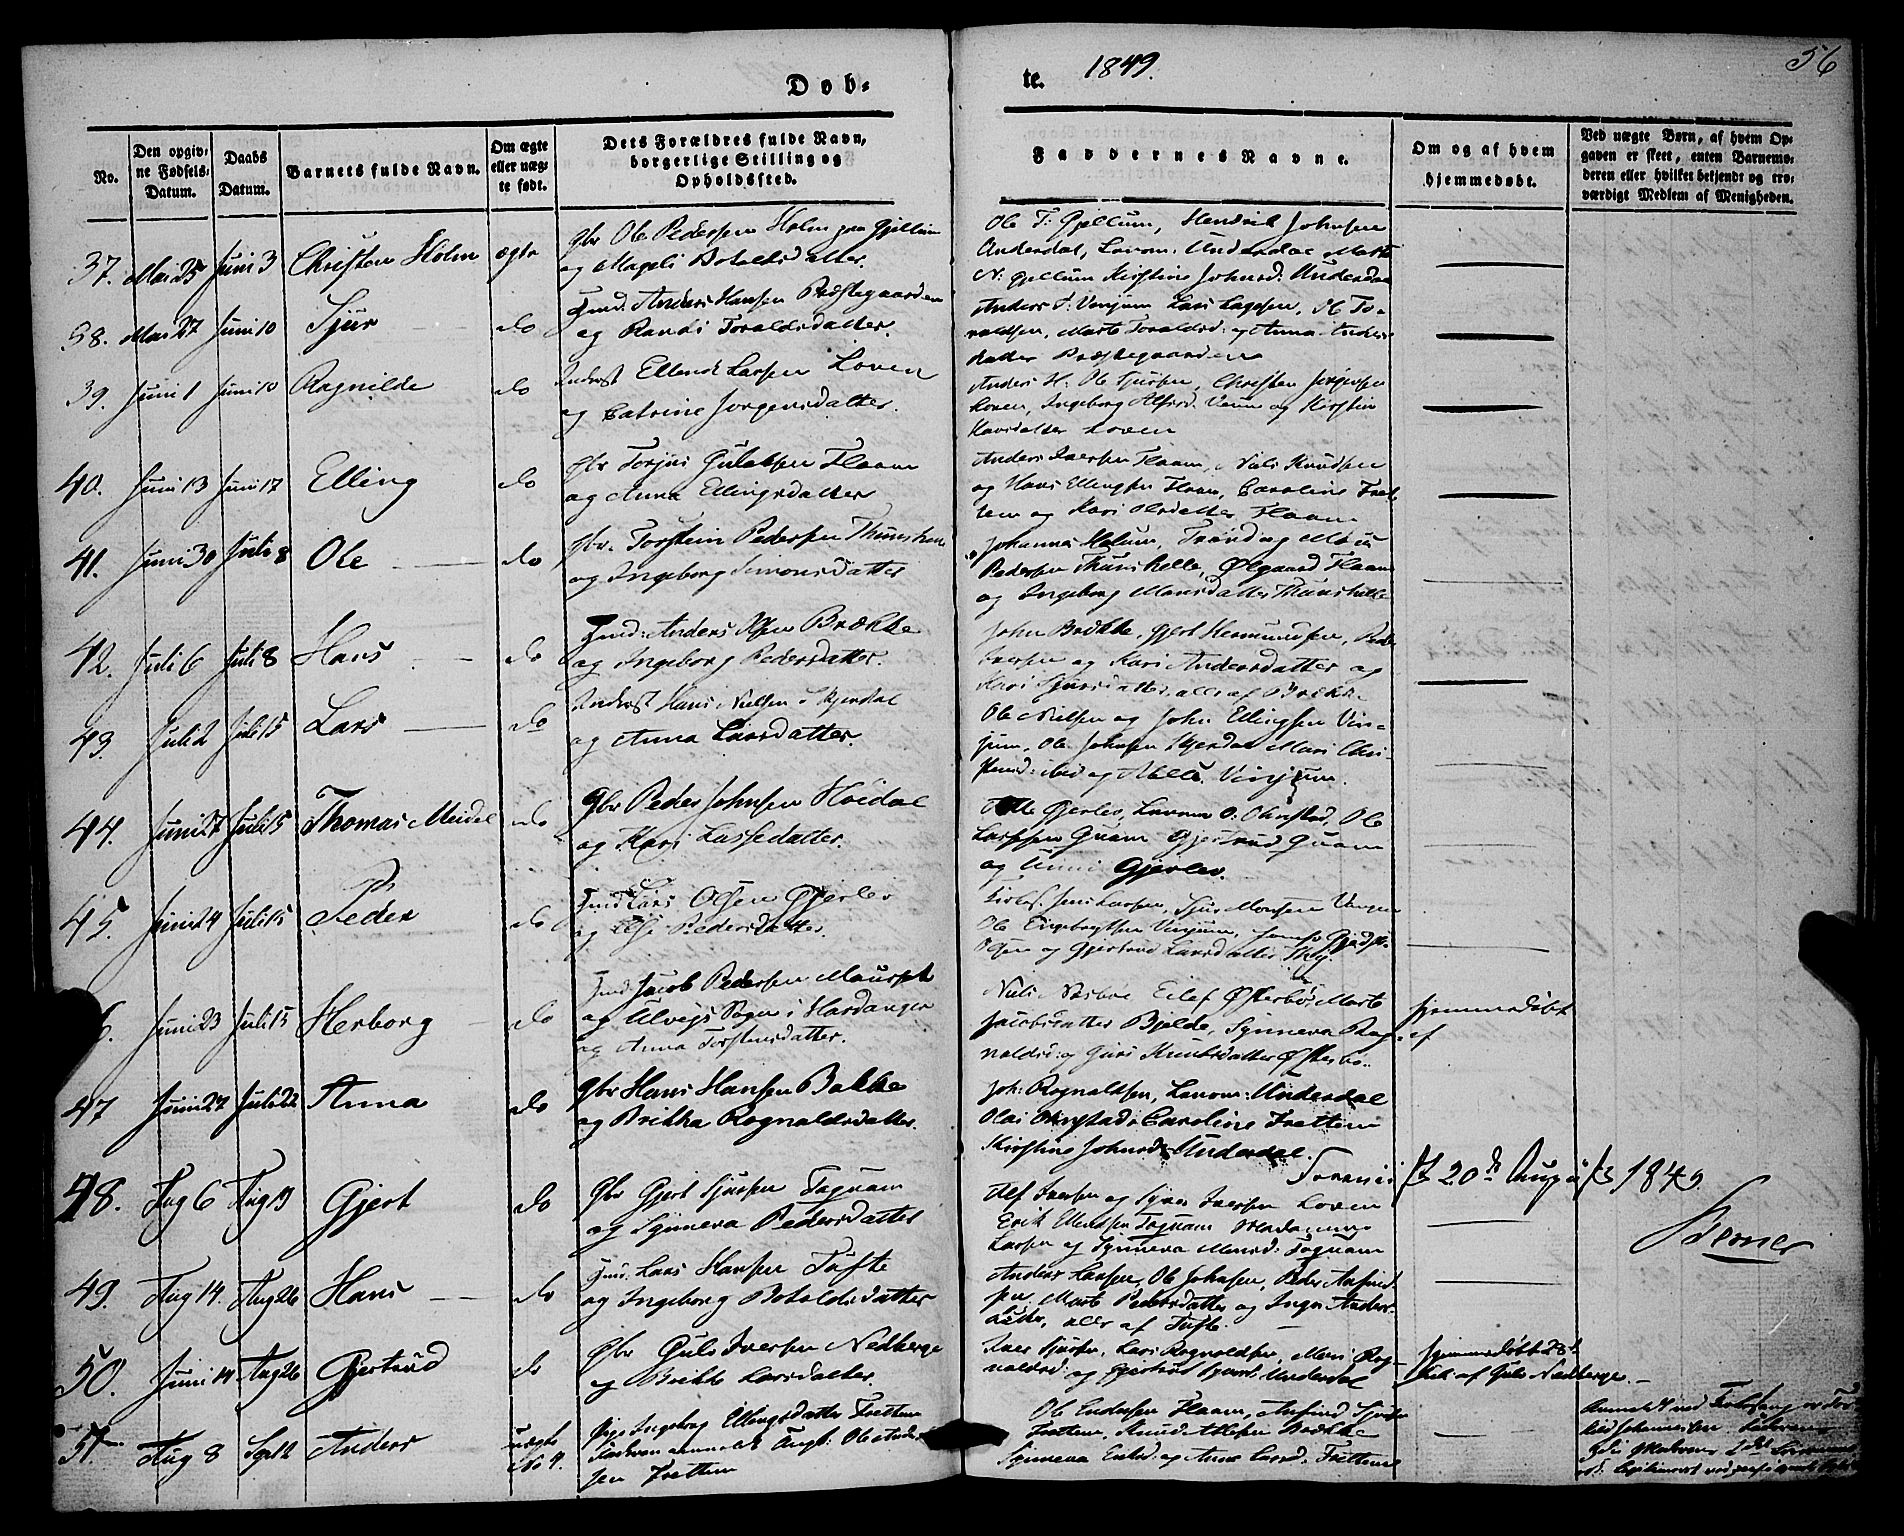 Døb-
te. 1849.
56
No.
Den opgiv-
ne Fødsels-
Datum.
Daabs
Datum.
Barnets fulde Navn.
Om ægte
eller uæg-
te født.
Dets Forældres fulde Navn,
borgerlige Stilling og
Opholdssted.
Faddernes Navne.
Om og af hvem
hjemmedøbt.
Ved uægte Børn, af hvem Op-
gaven er skeet, enten Barnemo-
deren eller hvilket bekjendt og tro-
værdigt Medlem af Menigheden.
37. Mai 25 Juni 3 Christen Holm ægte
Gbr Ole Pedersen Holm paa Gjellum
og Mageli Botolfsdatter.
Ole T: Gjellum, Hendrik Johnsen
Underdal, Lavom: Underdal Marte
N: Gjellum Kirstine Johnsd: Underdal
38. Mai 27 Juni 10 Sjur do
Huusmd: Anders Hansen Præstegaarden
og Randi Toraldsdatter.
Anders T: Venjum Lars Larsen, Ole To-
raldsen, Marte Toraldsd: og Anna Anders-
datter Præstegaarden
39. Juni 1 Juni 10 Ragnilde do
Inderst Ellend Larsen Loven
og Catrine Jørgensdatter.
Anders H: Ole Sjursen, Christen Jørgensen
Loven, Ingeborg og Kirstin
Loven
40. Juni 13 Juni 17 Elling do
Gbr Torjus Gulaksen Flaam
og Anna Ellingsdatter
Anders Iversen Flaam, Niels Knudsen
og Hans Ellingsen Flaam, Caroline Fret-
tem og Kari Olsdatter Flaam
41. Juni 30 Juli 8 Ole do
Gbr. Torstein Pedersen Thunshelle
og Ingeborg Simonsdatter
Johannes Holum, Trond og
Pedersen Thunshelle, Ølgaard Flaam
og Ingeborg Monsdatter Thunshelle
42. Juli 6 Juli 8 Hans do
Hmd: Anders Olsen Brække
og Ingeborg Pedersdatter.
John Brække, Gjert Hermundsen, Peder
Iversen og Kari Andersdatter og
Kari Sjursdatter alle af Brække
43. Juli 2 Juli 15 Lars do
Inderst Hans Nielsen Skjerdal
og Anna Larsdatter.
Ole Nielsen og John Ellingsen Vin-
jum, Ole Johnsen Skjerdal Mari
og Vinjum.
44. Juni 27 Juli 15 Thomas Meidel do
Gbr Peder Johnsen Høidal
og Kari Lassedatter.
Gjerløv, Lavom O: Ohnstad, Ole
Larsen Quam Gjertrud Quam
og Anni Gjerløv.
45. Juni 24 Juli 15 Peder do
Hmd Lars Olsen Gjerløv
og Else Pedersdatter.
Jens Larsen, Sjur Monsen Vinjum
Ole Engebregtsen Vinjum,
Olsen og Gjertrud Larsdatter
6. Juni 23 Juli 15 Herborg do
Hmd: Jacob Pedersen Maurset
og Ulvigs Sogn i Hardanger
og Anna Torstensdatter.
Niels Næsbøe Eilef Østerbø, Marte
Jacobsdatter Bjelde, Synneva Rag-
naldsd: og Guri Knudsdatter Østerbø.
hjemmedøbt
af
47 Juni 27 Juli 22 Anna do
Gbr Hans Hansen Bakke
og Brithe Rognaldsdatter.
Joh: Rognaldsen, Lavom: Underdal
Olai Ohnstad, Caroline Frettem
Kirstine Johnsd: Underdal.
20de August 1849.
Berner
48. Aug 6 Aug 19 Gjert do
Gbr Gjert Sjursen Fagnam
og Synneva Pedersdatter
Alf Iversen og Sjur Iversen Loven
Erik Ellendsen Fagnam Madamme
Larsen og Synneva Monsd: Fagnam
49. Aug 14. Aug 26 Hans do
Hmd: Lars Hansen Tufte
og Ingeborg Botolfsdatter
Anders Larsen, Ole Johnsen, Peder Arfind-
sen, Marte Pedersdatter og Inger Anders-
datter, alle af Tufte.
50. Juni 14 Aug 26 Gjertrud do
Gbr Guls Iversen Nedberge
og Brithe Larsdatter.
Iver Sjursen, Lars Rognaldsen, Mari Rog-
naldsd: og Gjertrud Sjursd: Underdal
hjemmedøbt
af Guls Nedberge
51. Aug 8 Sept 2 Anders uægte
No 4.
Pige Ingeborg Ellingsdatter Frettem
Ole Anders-
sen Frettem
Ole Endresen Flaam, Arfind Sjursen
Frettem, Knud Brække
Synneva og Anna Larsd: Frettem